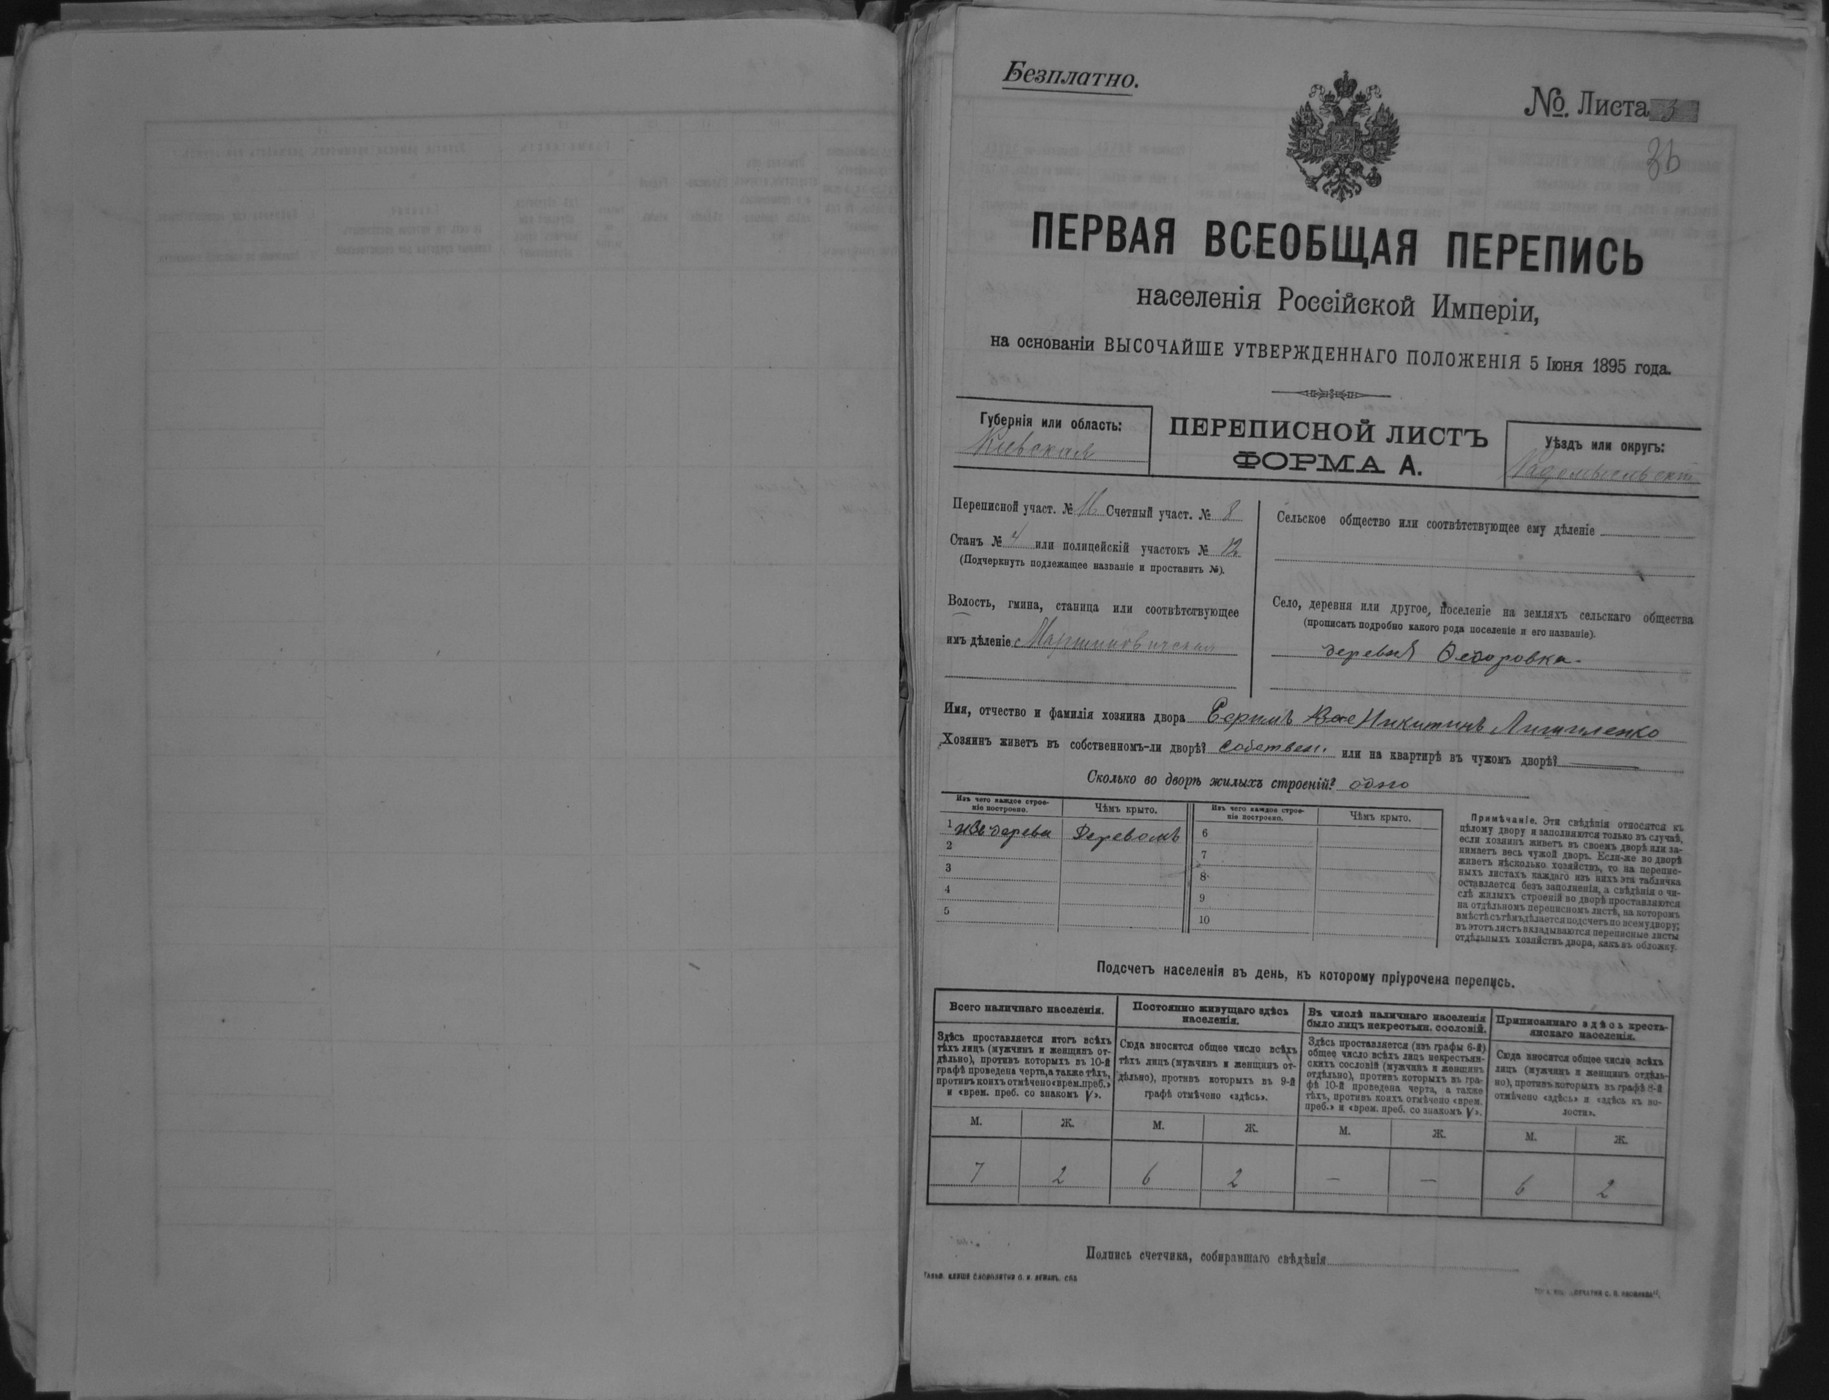 Безплатно.
№. Листа 3
36
ПЕРВАЯ ВСЕОБЩАЯ ПЕРЕПИСЬ
населенія Россійской Имперіи,
на основаніи ВЫСОЧАЙШЕ УТВЕРЖДЕННАГО ПОЛОЖЕНІЯ 5 Іюня 1895 года.
Губернія или область:
Кіевская
ПЕРЕПИСНОЙ ЛИСТЪ
ФОРМА А.
Уѣздъ или округъ:
Переписной участ. № 16 Счетный участ. № 8
Станъ № 4 или полицейскій участокъ № 12
(Подчеркнуть подлежащее названіе и проставить №).
Волость, гмина, станица или соотвѣтствующее
имъ дѣленіе Мартиновичская
Сельское общество или соотвѣтствующее ему дѣленіе
Село, деревня или другое, поселеніе на земляхъ сельскаго общества
(прописать подробно какого рода поселеніе и его названіе).
деревня Федоровка.
Имя, отчество и фамилія хозяина двора Ефимъ Никитинъ
Хозяинъ живетъ въ собственномъ-ли дворѣ? собствен. или на квартирѣ въ чужомъ дворѣ?
Сколько во дворѣ жилыхъ строеній? одно
Изъ чего каждое строе-
ніе построено.
Чѣмъ крыто.
Изъ чего каждое строе-
ніе построено.
Чѣмъ крыто.
1 изъ дерева Деревомъ
2
3
4
5
6
7
8
9
10
Примѣчаніе. Эти свѣдѣнія относятся къ
цѣлому двору и заполняются только въ случаѣ,
если хозяинъ живетъ въ своемъ дворѣ или за-
нимаетъ весь чужой дворъ. Если-же во дворѣ
живетъ нѣсколько хозяйствъ, то на перепис-
ныхъ листахъ каждаго изъ нихъ эта табличка
оставляется безъ заполненія, а свѣдѣнія о чи-
слѣ жилыхъ строеній во дворѣ проставляются
на отдѣльномъ переписномъ листѣ, на которомъ
вмѣстѣ съ тѣмъ дѣлается подсчетъ по всему двору;
въ этотъ листъ вкладываются переписные листы
отдѣльныхъ хозяйствъ двора, какъ въ обложку.
Подсчетъ населенія въ день, къ которому пріурочена перепись.
Всего наличнаго населенія.
Здѣсь проставляется итогъ всѣхъ
тѣхъ лицъ (мужчинъ и женщинъ от-
дѣльно), противъ которыхъ въ 10-й
графѣ проведена черта, а также тѣхъ,
противъ коихъ отмѣчено «врем. преб.»
и «врем. преб. со знакомъ V».
Постоянно живущаго здѣсь
населенія.
Сюда вносится общее число всѣхъ
тѣхъ лицъ (мужчинъ и женщинъ от-
дѣльно), противъ которыхъ въ 9-й
графѣ отмѣчено «здѣсь».
Въ числѣ наличнаго населенія
было лицъ некрестьян. сословій.
Здѣсь проставляется (изъ графы 6-й)
общее число всѣхъ лицъ некрестьян-
скихъ сословій (мужчинъ и женщинъ
отдѣльно), противъ которыхъ въ гра-
фѣ 10-й проведена черта, а также
тѣхъ, противъ коихъ отмѣчено «врем.
преб.» и «врем. преб. со знакомъ V».
Приписаннаго здѣсь кресть-
янскаго населенія.
Сюда вносится общее число всѣхъ
лицъ (мужчинъ и женщинъ отдѣль-
но), противъ которыхъ въ графѣ 8-й
отмѣчено «здѣсь» и «здѣсь въ во-
лости».
М. Ж. М. Ж. М. Ж. М. Ж.
7 2 6 2 — — 6 2
Подпись счетчика, собиравшаго свѣдѣнія